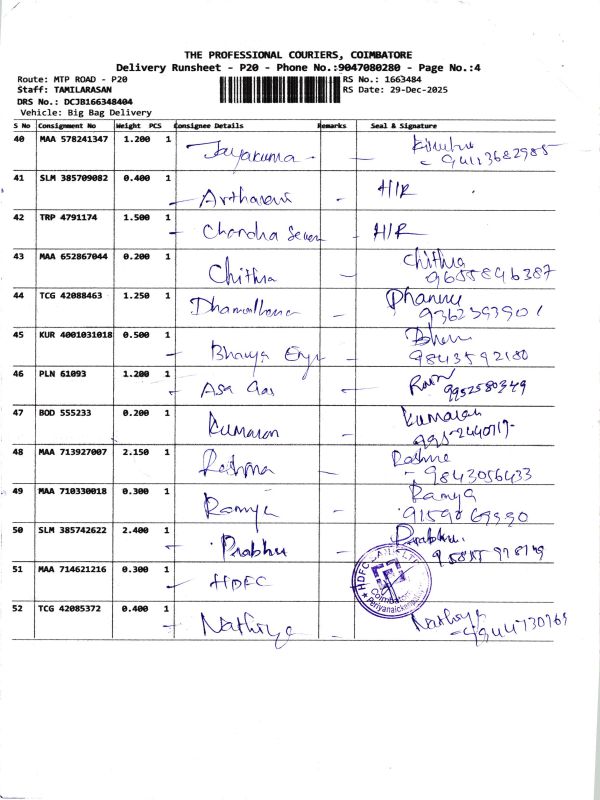 THE PROFESSIONAL COURIERS, COIMBATORE
Delivery Runsheet - P20 - Phone No.:9047080280 - Page No.:4
Route: MTP ROAD - P20 RS No.: 1663484
Staff: TAMILARASAN RS Date: 29-Dec-2025
DRS No.: DCJB166348404
Vehicle: Big Bag Delivery
S No Consignment No Weight PCS Consignee Details Remarks Seal & Signature
40 MAA 578241347 1.200 1 Jayakuma
41 SLM 385709082 0.400 1 H/R
42 TRP 4791174 1.500 1 Chandra H/R
43 MAA 652867044 0.200 1 Chithra Chithra
9655846387
44 TCG 42088463 1.250 1
45 KUR 4001031018 0.500 1 Bhavya
9843592180
46 PLN 61093 1.200 1
9952580349
47 BOD 555233 0.200 1 Kumaran Kumaran
48 MAA 713927007 2.150 1 Reshma
9843056433
49 MAA 710330018 0.300 1 Ramya Ramya
50 SLM 385742622 2.400 1 Prabhu Prabhu
51 MAA 714621216 0.300 1 HDFC HDFC BANK LTD
Coimbatore
52 TCG 42085372 0.400 1 Nathiya Nathiya